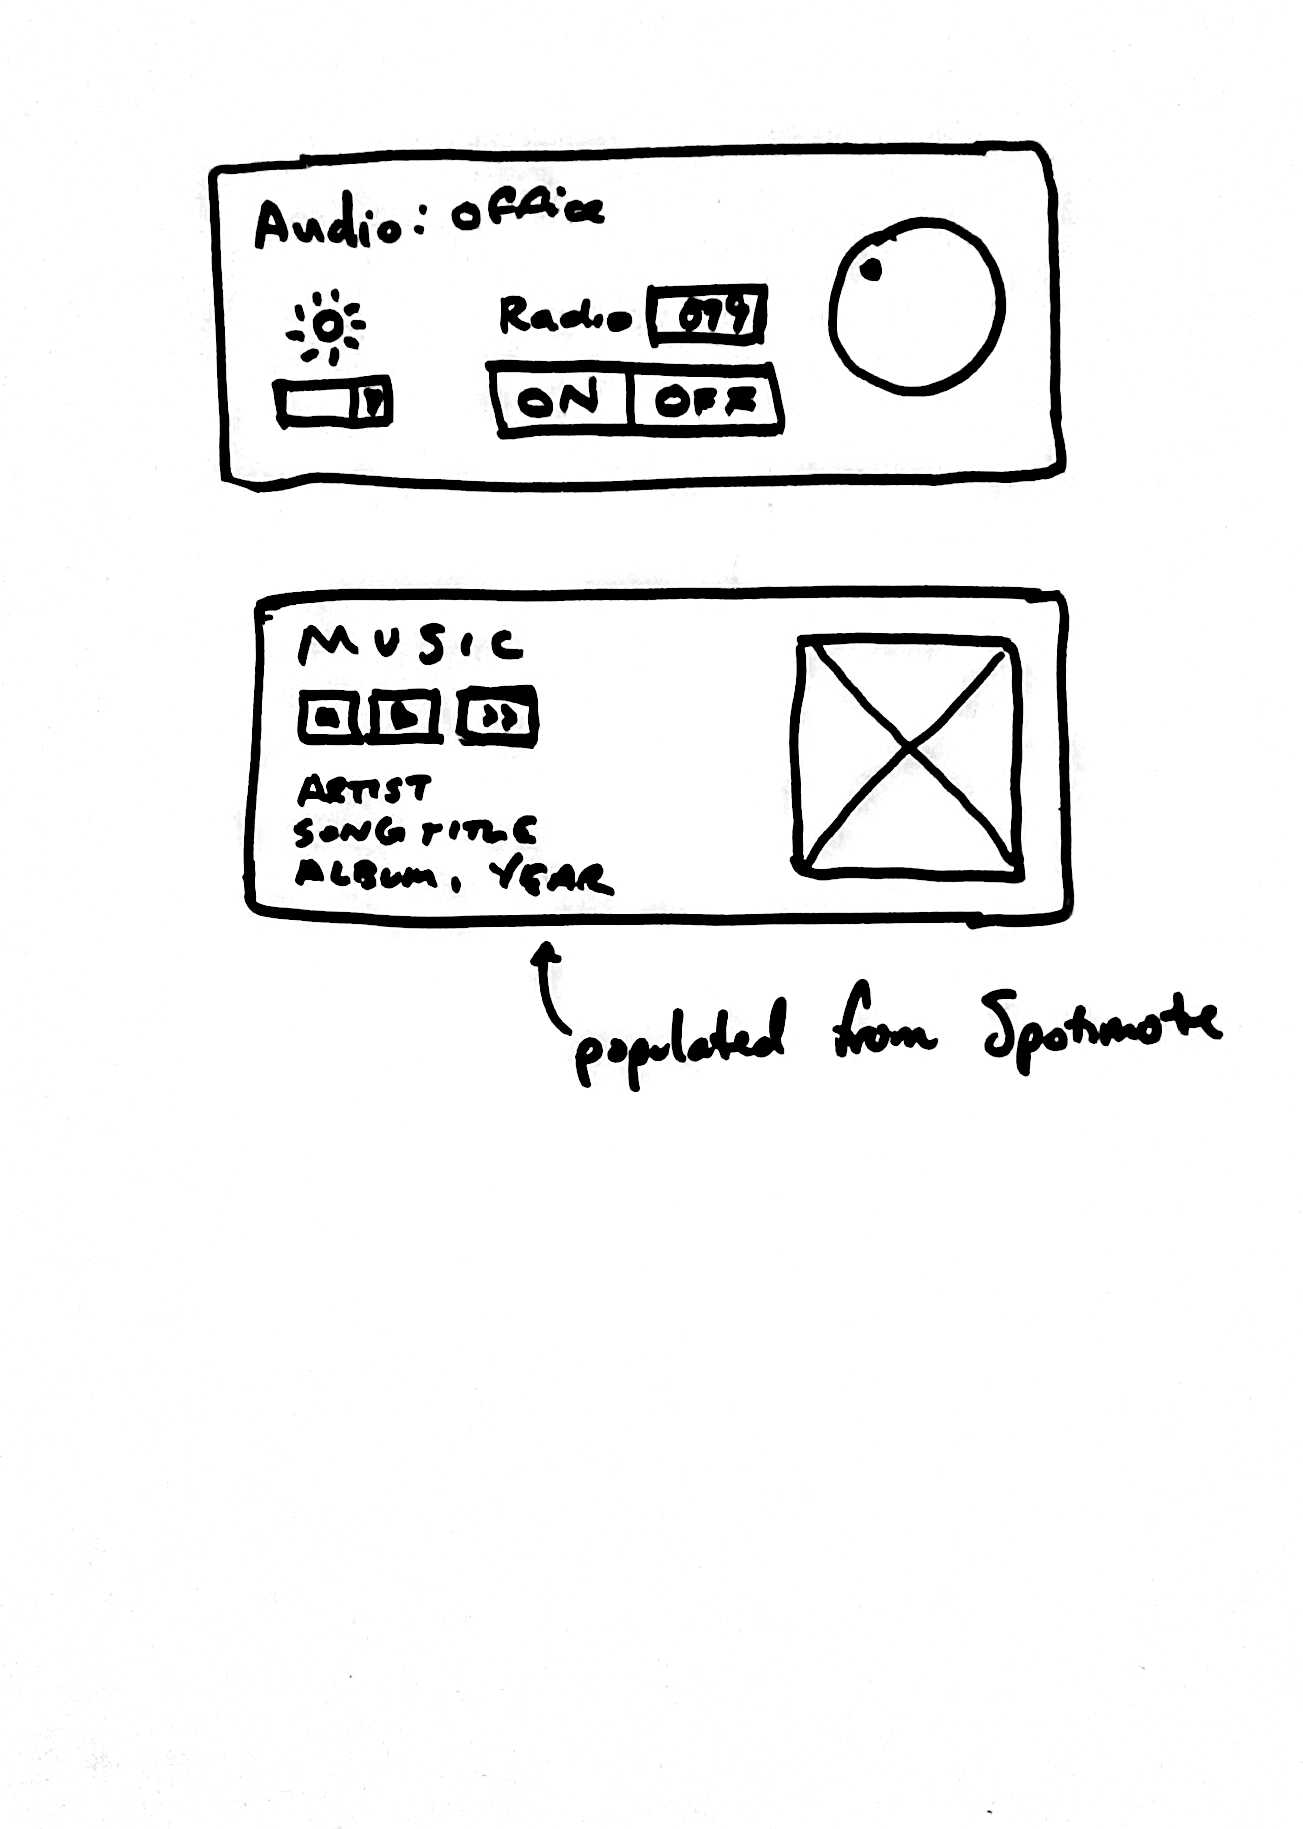 Audio: office
Radio 079
ON OFF
MUSIC
ARTIST
SONG TITLE
ALBUM, YEAR
populated from Spotimote